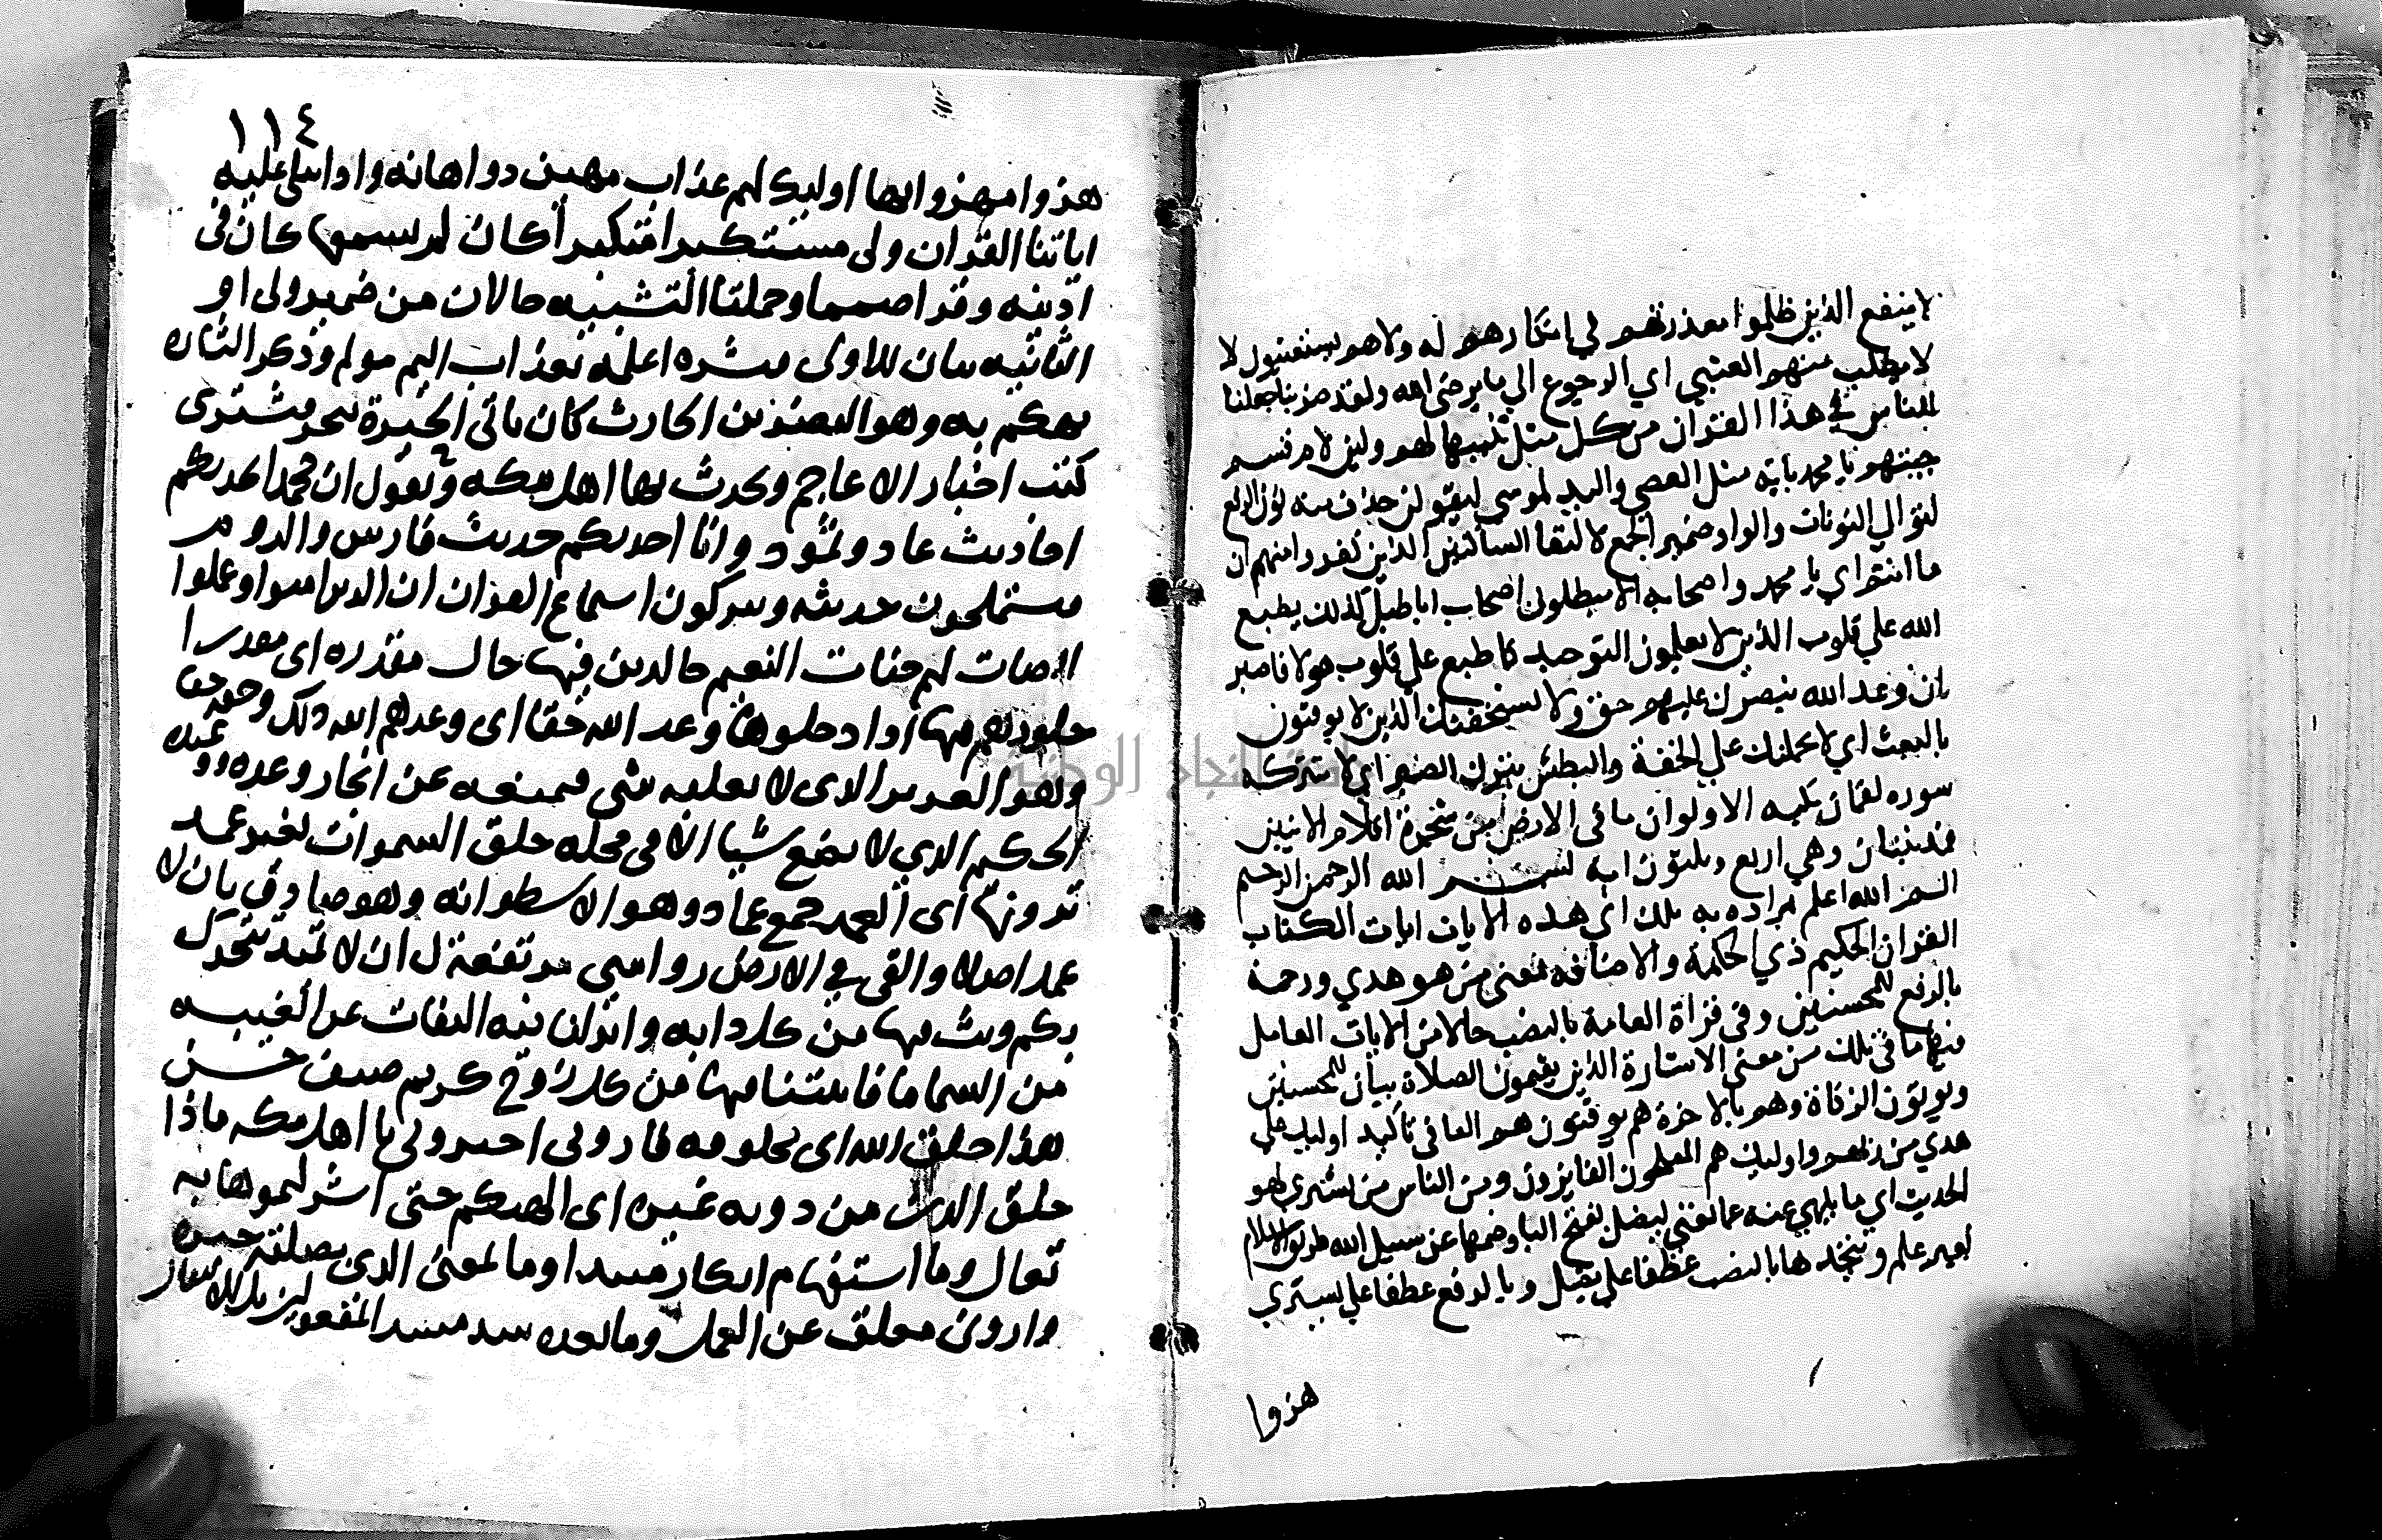 لا ينفع الذين ظلموا معذرتهم في انكارهم له ولا هم يستعتبون لا
لا يطلب منهم العتبي اي الرجوع الي ما يرضي الله ولقد ضربنا جعلنا
للناس في هذا القران من كل مثل تنبيها لهم ولين لام قسم
جيتهم يا محمد باية مثل العصي واليد لموسي ليقولن حذف منه نون الرفع
لتوالي النونات والواو ضمير الجمع لالتقا الساكنين الذين كفروا منهم ان
ما انتم اي يا محمد واصحابه الا مبطلون اصحاب اباطيل كذلك يطبع
الله علي قلوب الذين لا يعلمون التوحيد كما طبع علي قلوب هولا فاصبر
بان وعد الله بنصرك عليهم حق ولا يستخفنك الذين لا يوقنون
بالبعث اي لا يحملنك علي الخفة والبطش بترك الصبر اي لا تتركه
سورة لقمان مكيه الا ولو ان ما في الارض من شجرة اقلام الايتين
فمدنيتان وهي اربع وثلثون اية بسم الله الرحمن الرحيم
الم الله اعلم بمراده به تلك اي هذه الايات ايات الكتاب
القران الحكيم ذي الحكمة والاضافه بمعني من هو هدي ورحمة
بالرفع للمحسنين وفي قراة العامة بالنصب حالا من الايات العامل
فيها ما في تلك من معني الاشارة الذين يقيمون الصلاة بيان للمحسنين
ويوتون الزكاة وهم بالاخرة هم يوقنون هم الثاني تاكيد اوليك علي
هدي من ربهم واوليك هم المفلحون الفايزون ومن الناس من يشتري لهو
الحديث اي ما يلهي عنه عما يعني ليضل بفتح اليا وضمها عن سبيل الله طريق الاسلام
بغير علم ويتخذها بالنصب عطفا علي يضل وبالرفع عطفا علي يشتري
هزوا
١١٤
هزوا مهزوا بها اوليك لهم عذاب مهين ذو اهانه واذا تتلى عليه
اياتنا القران ولى مستكبرا متكبرا كان لم يسمعها كان فى
اذنيه وقرا صمما وجملتا التشبيه حالان من ضمير ولى او
الثانيه بيان للاولى فبشره اعلمه بعذاب اليم مولم وذكر البشاره
تهكم به وهو النضر بن الحارث كان ياتى الحيرة يتجر فيشترى
كتب اخبار الاعاجم ويحدث بها اهل مكه ويقول ان محمدا يحدثكم
احاديث عاد وثمود وانا احدثكم حديث فارس والروم
فيستملحون حديثه ويتركون استماع القران ان الذين امنوا وعملوا
الصالحات لهم جنات النعيم خالدين فيها حال مقدره اى مقدرا
خلودهم فيها اذا دخلوها وعد الله حقا اى وعدهم الله ذلك وحقه حقا
وهو العزيز الذى لا يغلبه شى فيمنعه عن انجاز وعده ووعيده
الحكيم الذي لا يضع شيا الا فى محله خلق السموات بغير عمد
ترونها اى العمد جمع عماد وهو الاسطوانه وهو صادق بان لا
عمد اصلا والقى في الارض رواسي مرتفعة ل ان لا تميد تتحرك
بكم وبث فيها من كل دابه وانزلنا فيه التفات عن الغيبه
من السما ما فانبتنا فيها من كل زوج كريم صنف حسن
هذا خلق الله اى مخلوقه فارونى اخبرونى يا اهل مكه ماذا
خلق الذين من دونه غيره اى الهتكم حتى اشركتموها به
تعالى وما استفهام انكار مبتدا وما بمعنى الذى بصلته خبره
واروني معلق عن العمل وما بعده سد مسد المفعولين بل للانتقال